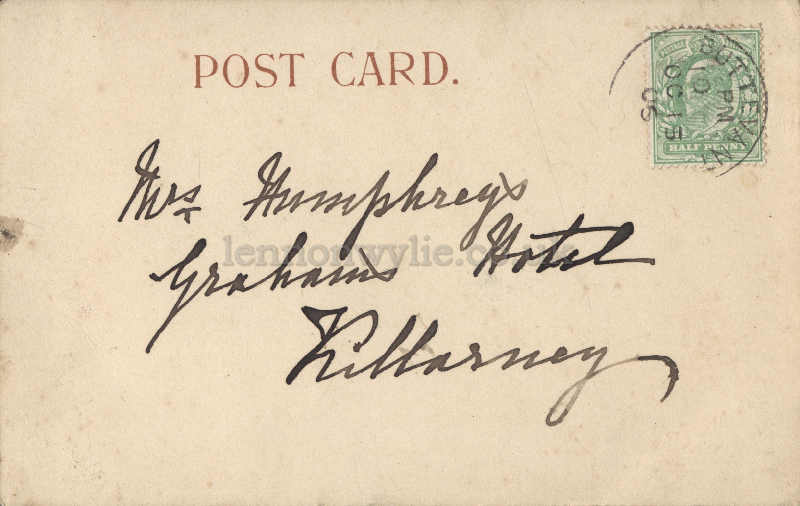 POST CARD.
POSTAGE
HALF PENNY
BUTTEVANT
PM
OC 15
05
Mrs Humphreys
Grahams Hotel
Killarney
lennonwylie.co.uk